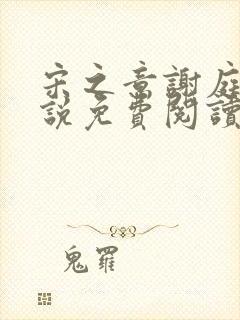 宋之章謝庭
說免費閱讀
鬼羅